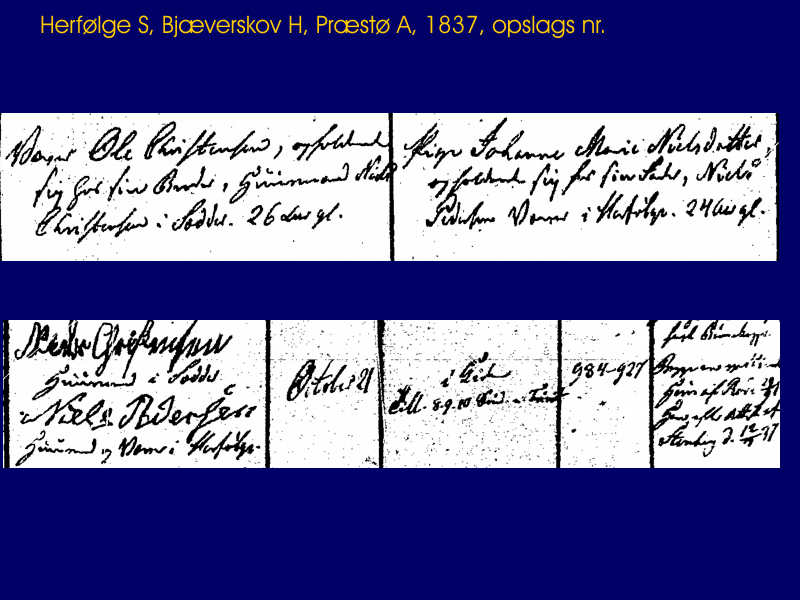 Herfølge S, Bjæverskov H, Præstø A, 1837, opslags nr.
Væver Ole Christensen, opholdende
sig hos sin Broder, Huusmand Niels
Christensen i Sædder. 26 Aar gl.
Pige Johanne Marie Nielsdatter,
opholdende sig hos sin Fader, Niels
Pedersen Væver i Herfølge. 24 Aar gl.
Christensen
Huusmand i Sædder
Niels Pedersen
Huusmand og Væver i Herfølge.
October 21
i Kirken
Till. 8. 9. 10 Sønd.
984-927
Begge
Huus af
Attest af